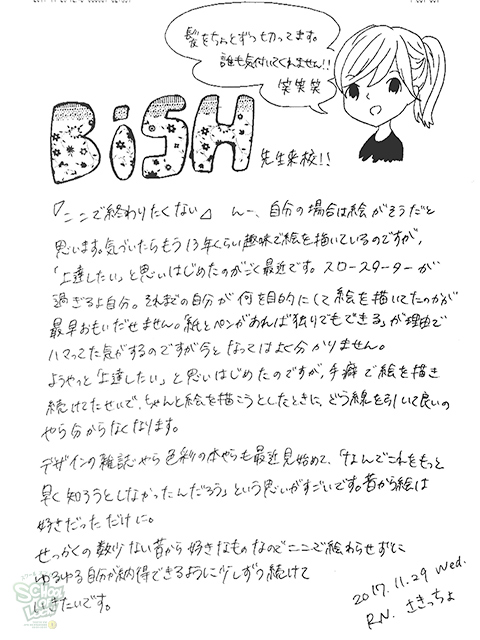 髪をちょっとずつ切ってます。
誰も気付いてくれません!!
笑笑笑
BiSH 先生来校!!
『ここで終わりたくない』 んー、自分の場合は絵がそうだと
思います。気づいたらもう13年くらい趣味で絵を描いているのですが、
「上達したい」と思いはじめたのがごく最近です。スロースターターが
過ぎるよ自分。それまでの自分が何を目的にして絵を描いてたのかが
最早おもいだせません。「紙とペンがあれば独りでもできる」が理由で
ハマってた気がするのですが今となってはよく分かりません。
ようやっと「上達したい」と思いはじめたのですが、手癖で絵を描き
続けてたせいで、ちゃんと絵を描こうとしたときに、どう線を引いて良いの
やら分からなくなります。
デザインの雑誌やら色彩の本やらも最近見始めて、「なんでこれをもっと
早く知ろうとしなかったんだろう」という思いがすごいです。昔から絵は
好きだっただけに。
せっかくの数少ない昔から好きなものなのでここで終わらせずに
ゆるゆる自分が納得できるように少しずつ続けて
いきたいです。
2017.11.29 Wed.
R.N. さきっちょ
SCHOOL OF LOCK!